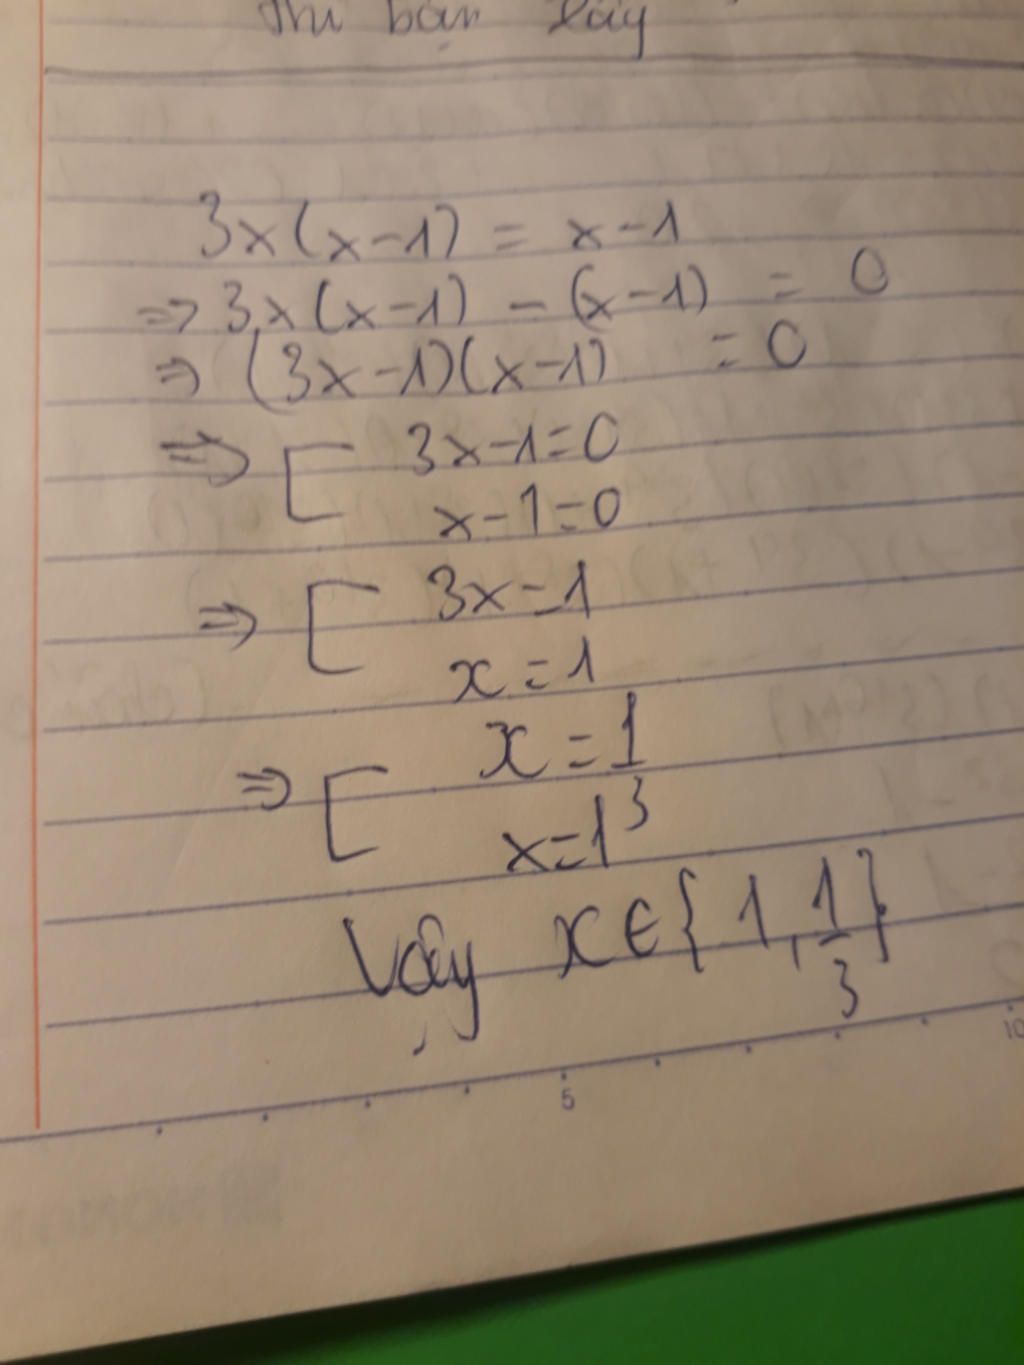 thì bạn lấy
3x(x-1) = x-1
=> 3x(x-1) - (x-1) = 0
=> (3x-1)(x-1) = 0
=> [ 3x-1=0
x-1=0
=> [ 3x=1
x=1
=> [ x=1
x=1 3
Vậy x∈{1,1/3}
5
10